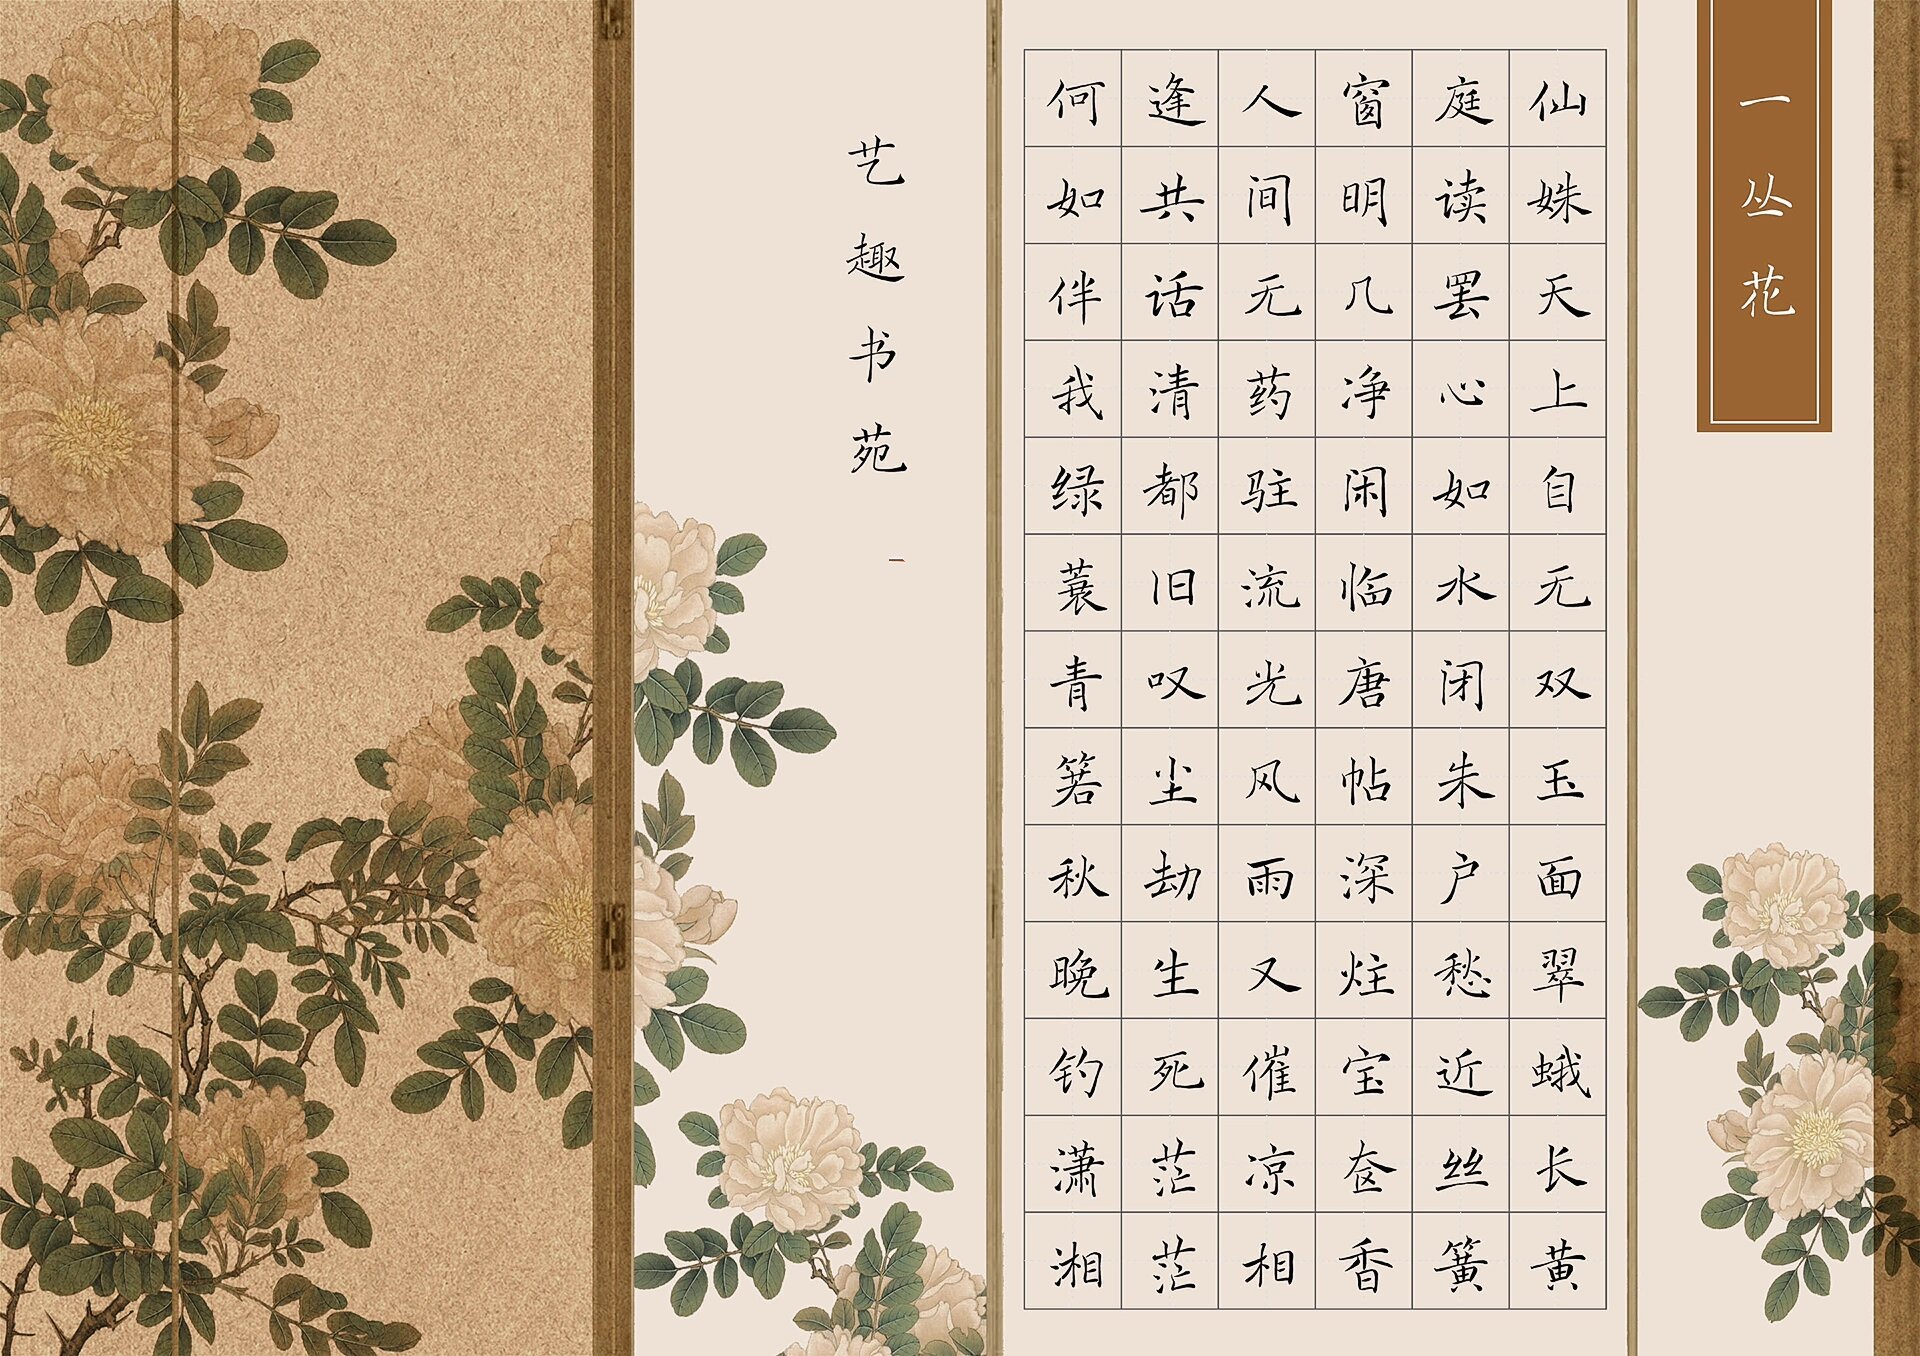 一丛花
仙姝天上自无双玉面翠蛾长黄
庭读罢心如水闭朱户愁近丝簧
窗明几净闲临唐帖深炷宝奁香
人间无药驻流光风雨又催凉相
逢共话清都旧叹尘劫生死茫茫
何如伴我绿蓑青箬秋晚钓潇湘
艺趣书苑